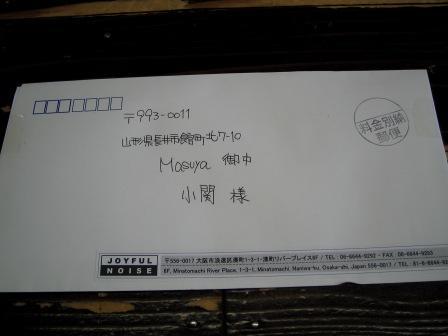 〒993-0011
料金別納
郵便
山形県長井市館町北7-10
Masuya 御中
小関 様
JOYFUL
NOISE
〒556-0017 大阪市浪速区湊町1-3-1・湊町リバープレイス6F / TEL : 06-6644-9292・FAX : 06-6644-9293
6F, Minatomachi River Place, 1-3-1, Minatomachi, Naniwa-ku, Osaka-shi, Japan 556-0017 / TEL : 81-6-6644-92